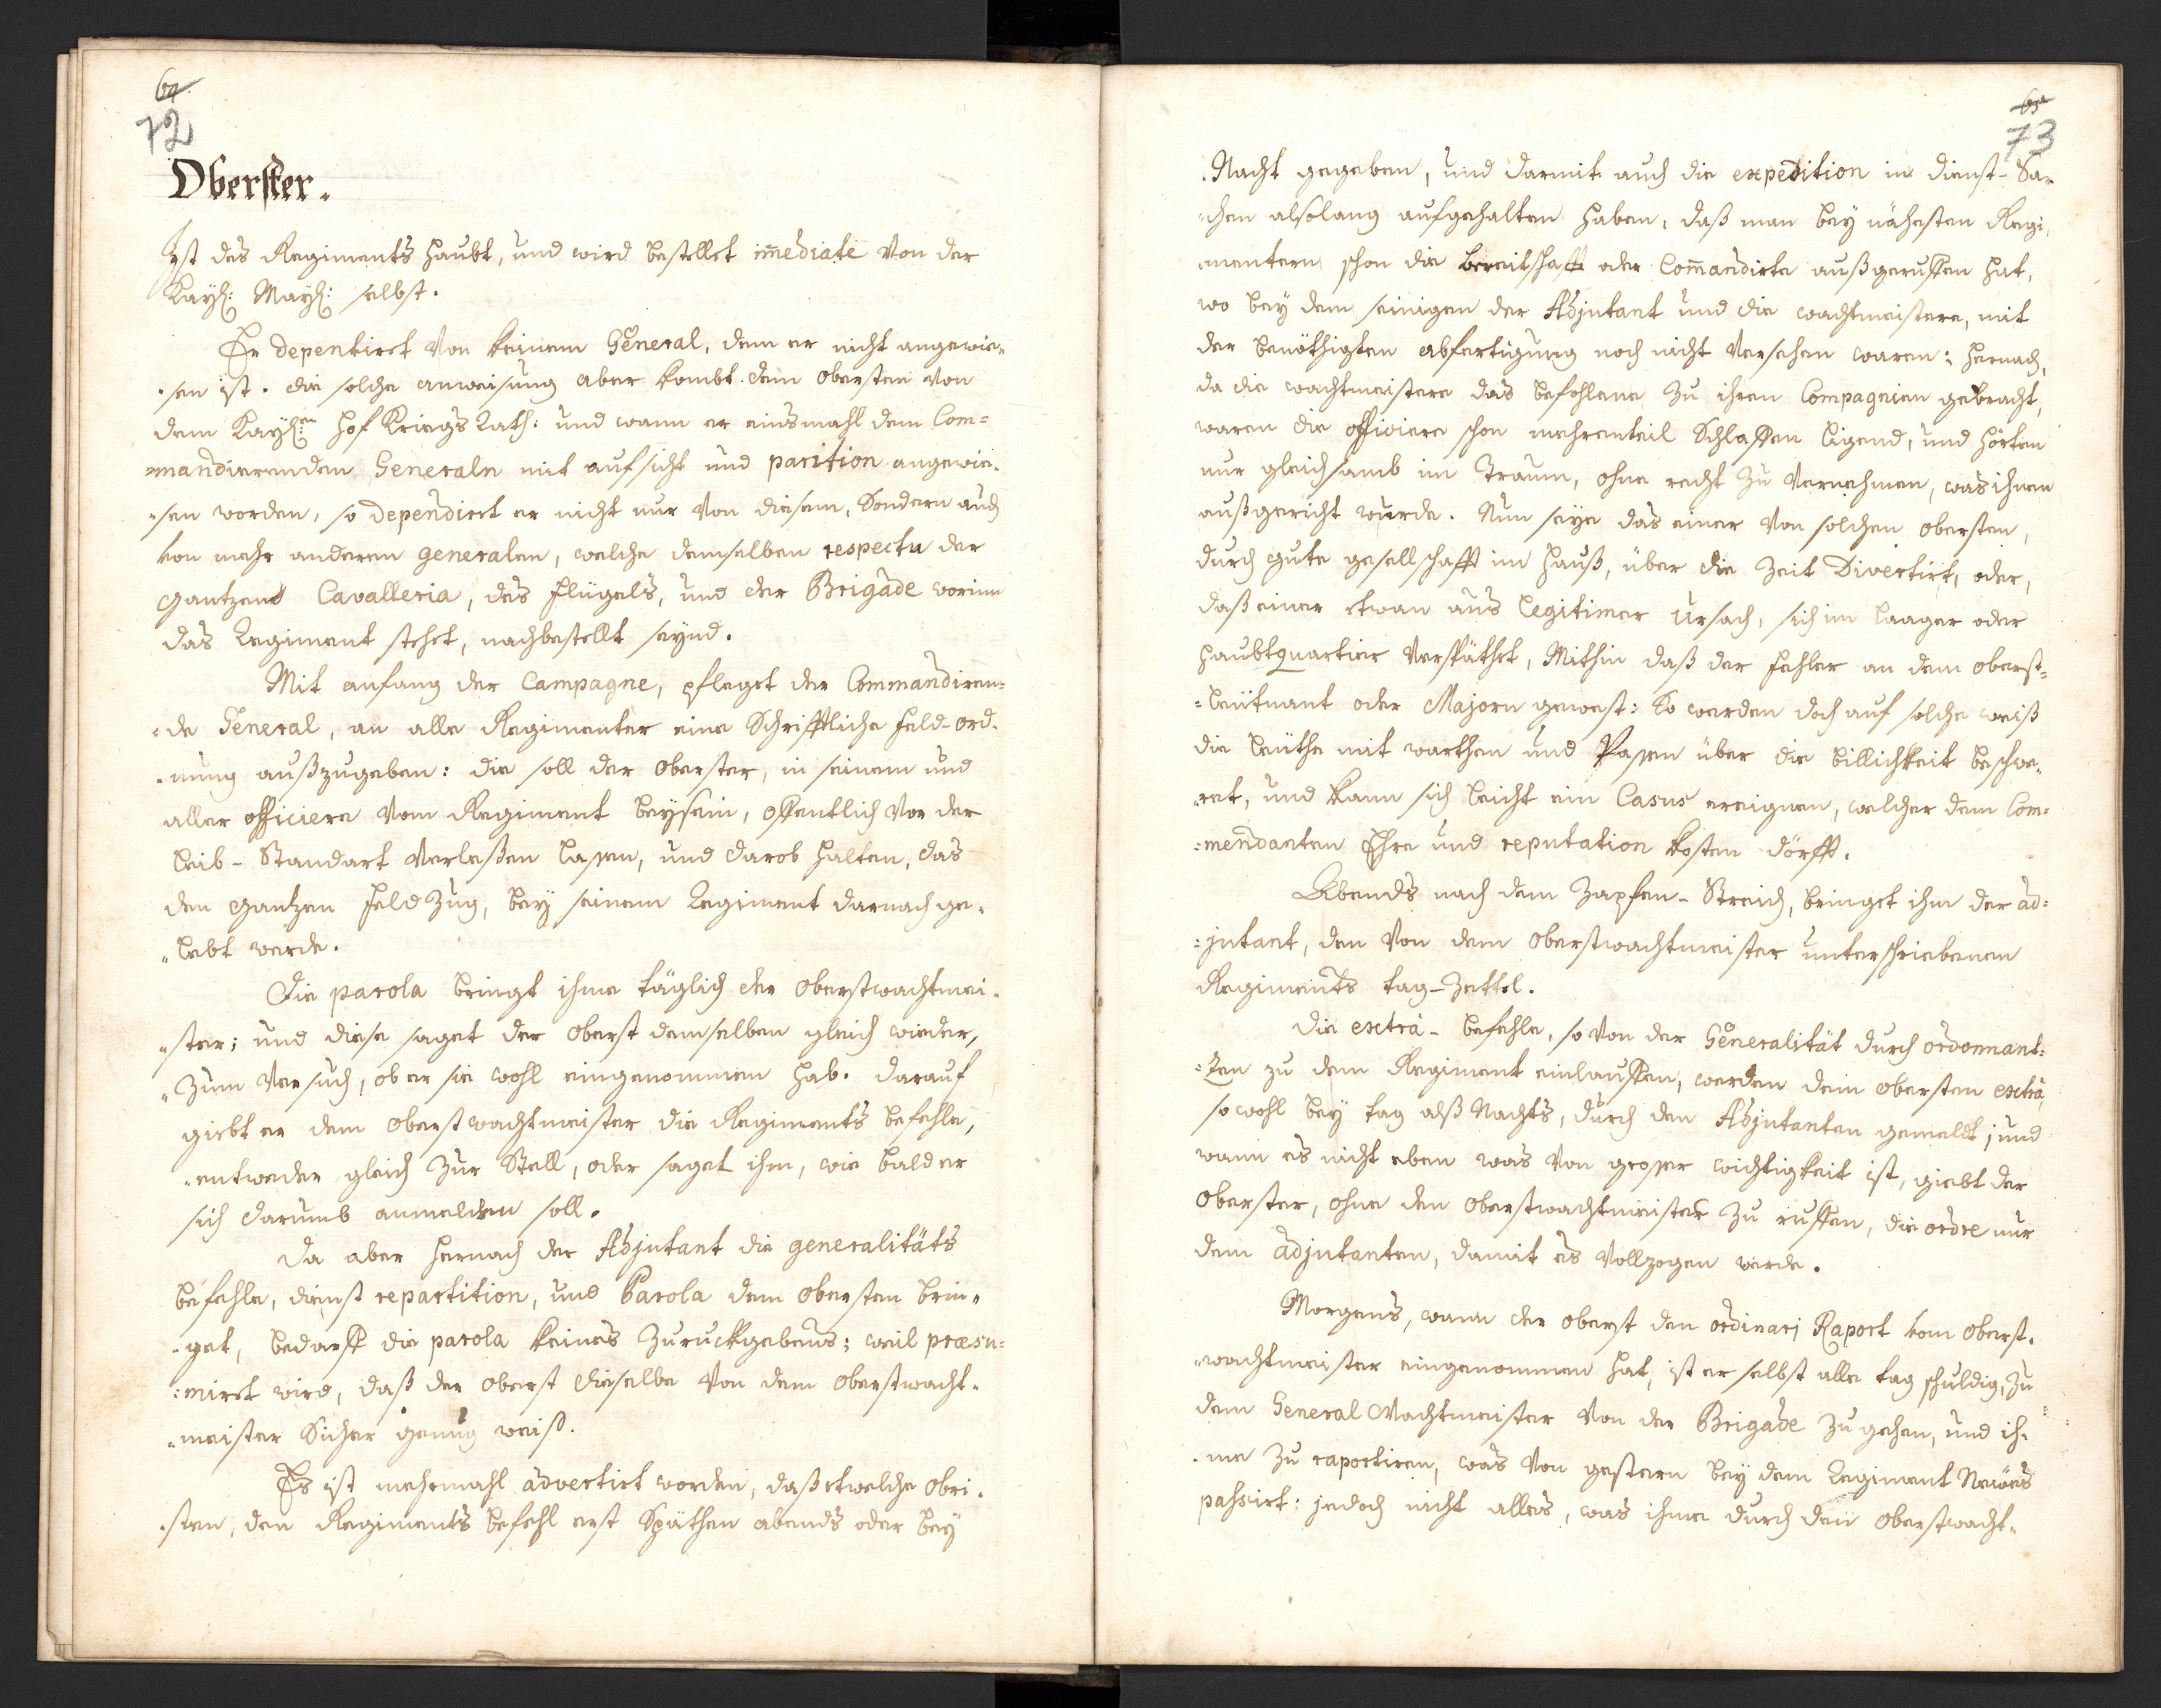 64.
72
Oberster.
Ist des Regiments Haubt, und wird bestellet im̄ediatè von der
Kayl: Mayl: selbst.
Er depentiret von keinem General, dem er nicht angewie„
„sen ist. die solche anweisung aber kombt dem obersten von
dem Kayl:en Hof Kriegs Rath: und wann er einsmahl dem Com=
=mandierenden Generaln mit aufsicht und parition angewie„
„sen worden, so dependiret er nicht nur von diesem, Sondern auch
von mehr anderen generalen, welche demselben respectu der
gantzend Cavalleria, des flügels, und der Brigade worinn
das Regiment stehet, nachbestellt seynd.
Mit anfang der Campagne, pfleget der Commandiren=
=de General, an alle Regimenter eine Schrifftliche feld-ord„
„nung außzugeben: die soll der oberster, in seinem und
aller officiere vom Regiment beysein, offentlich vor der
leib-Standart verleßen lassen, und darob halten, das
den gantzen feld Zug, bey seinem Regiment darnach ge„
„lebt werde.
Die parola bringt ihme täglich der oberstwachtmei„
„ster; und diese saget der oberst demselben gleich wieder,
„Zum versuch, ob er sie wohl eingenommen hab. darauf
giebt er dem oberstwachtmeister die Regiments befehle,
„entweder gleich Zur Stell, oder saget ihm, wie bald er
sich darumb anmelden soll.
Da aber hernach der Adjutant die generalitäts
befehle, dienst repartition, und Parola dem obersten brin„
„get, bedarff die parola keines Zuruckgebens; weil præsu=
=miret wird, daß der oberst dieselbe von dem oberstwacht„
„meister Sicher genug weiß.
Es ist mehrmahl advertirt worden, daß etwelche obri„
„sten, den Regiments befehl erst Späthen abends oder bey
65
73
Nacht gegeben, und darmit auch die expedition in dienst-Sa„
„chen alsolang aufgehalten haben, daß man bey nähesten Regi„
„mentern schon die bereitschafft oder Com̄andirte außgeruffen hat,
wo bey dem seinigen der Adjutant und die wachtmeistere, mit
der benöthigten abfertigung noch nicht versehen waren: hernach,
da die wachtmeistere das befohlene Zu ihren Compagnien gebracht,
waren die officiere schon mehrenteil Schlaffen ligend, und hörten
nur gleichsamb im Traum, ohne recht Zu vernehmen, was ihnen
außgericht wurde. Nun seye das einer von solchen obersten,
durch gute gesellschafft im Hauß, über die Zeit Divertirt, oder,
daß einer etwan aus legitimer Ursach, sich im laager oder
Haubtquartier verspäthet, Mithin daß der fehler an dem oberst=
=leutnant oder Majorn gewest: So werden doch auf solche weiß
die leuthe mit warthen und Passen über die billichkeit beschwe„
„ret, und kann sich leicht ein Casus ereignen, welcher dem Com=
=mendanten Ehre und reputation kosten dörfft.
Abends nach dem Zapfen-Streich, bringet ihm der ad=
=jutant, den von dem oberstwachtmeister unterschriebenen
Regiments tag-Zettel.
Die extrà-befehle, so von der Generalität durch ordonnant=
=zen zu dem Regiment einlauffen, werden dem obersten extrà,
so wohl bey tag alß Nachts, durch den Adjutanten gemeldt; und
wann es nicht eben was von grosser wichtigkeit ist, giebt der
oberster, ohne den oberstwachtmeister Zu ruffen, die ordre nur
dem adjutanten, damit es vollzogen werde.
Morgens, wann der oberst den ordinarj Raport vom oberst„
„wachtmeister eingenommen hat, ist er selbst alle tag schuldig, Zu
dem General Wachtmeister von der Brigade Zu gehen, und ih„
„me Zu raportiren, was von gestern bey dem Regiment Neues
passirt: jedoch nicht alles, was ihme durch den oberstwacht„